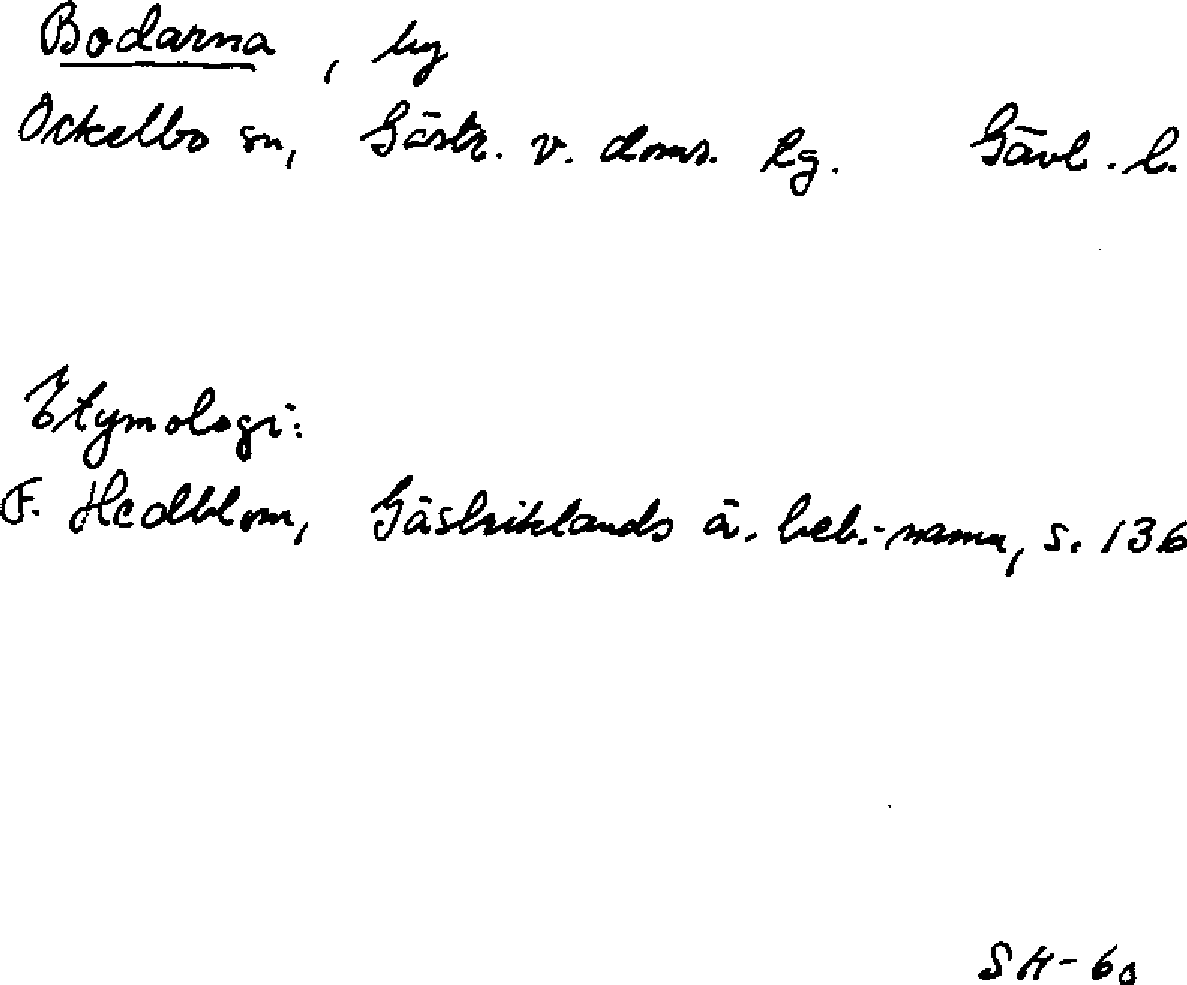 Bodarna, by
Ockelbo sn, Gästr. v. doms. lg. Gävl. l.
Etymologi:
F. Hedblom, Gästriklands ä. beb.-namn, s. 136
SH-60